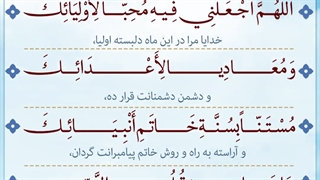 اَللّٰهُمَّ اجْعَلْنِي فِيهِ مُحِبّاً لِأَوْلِيَائِكَ
خدایا مرا در این ماه دلبسته اولیا،
وَ مُعَادِياً لِأَعْدَائِكَ
و دشمن دشمنانت قرار ده،
مُسْتَنّاً بِسُنَّةِ خَاتَمِ أَنْبِيَائِكَ
و آراسته به راه و روش خاتم پیامبرانت گردان،